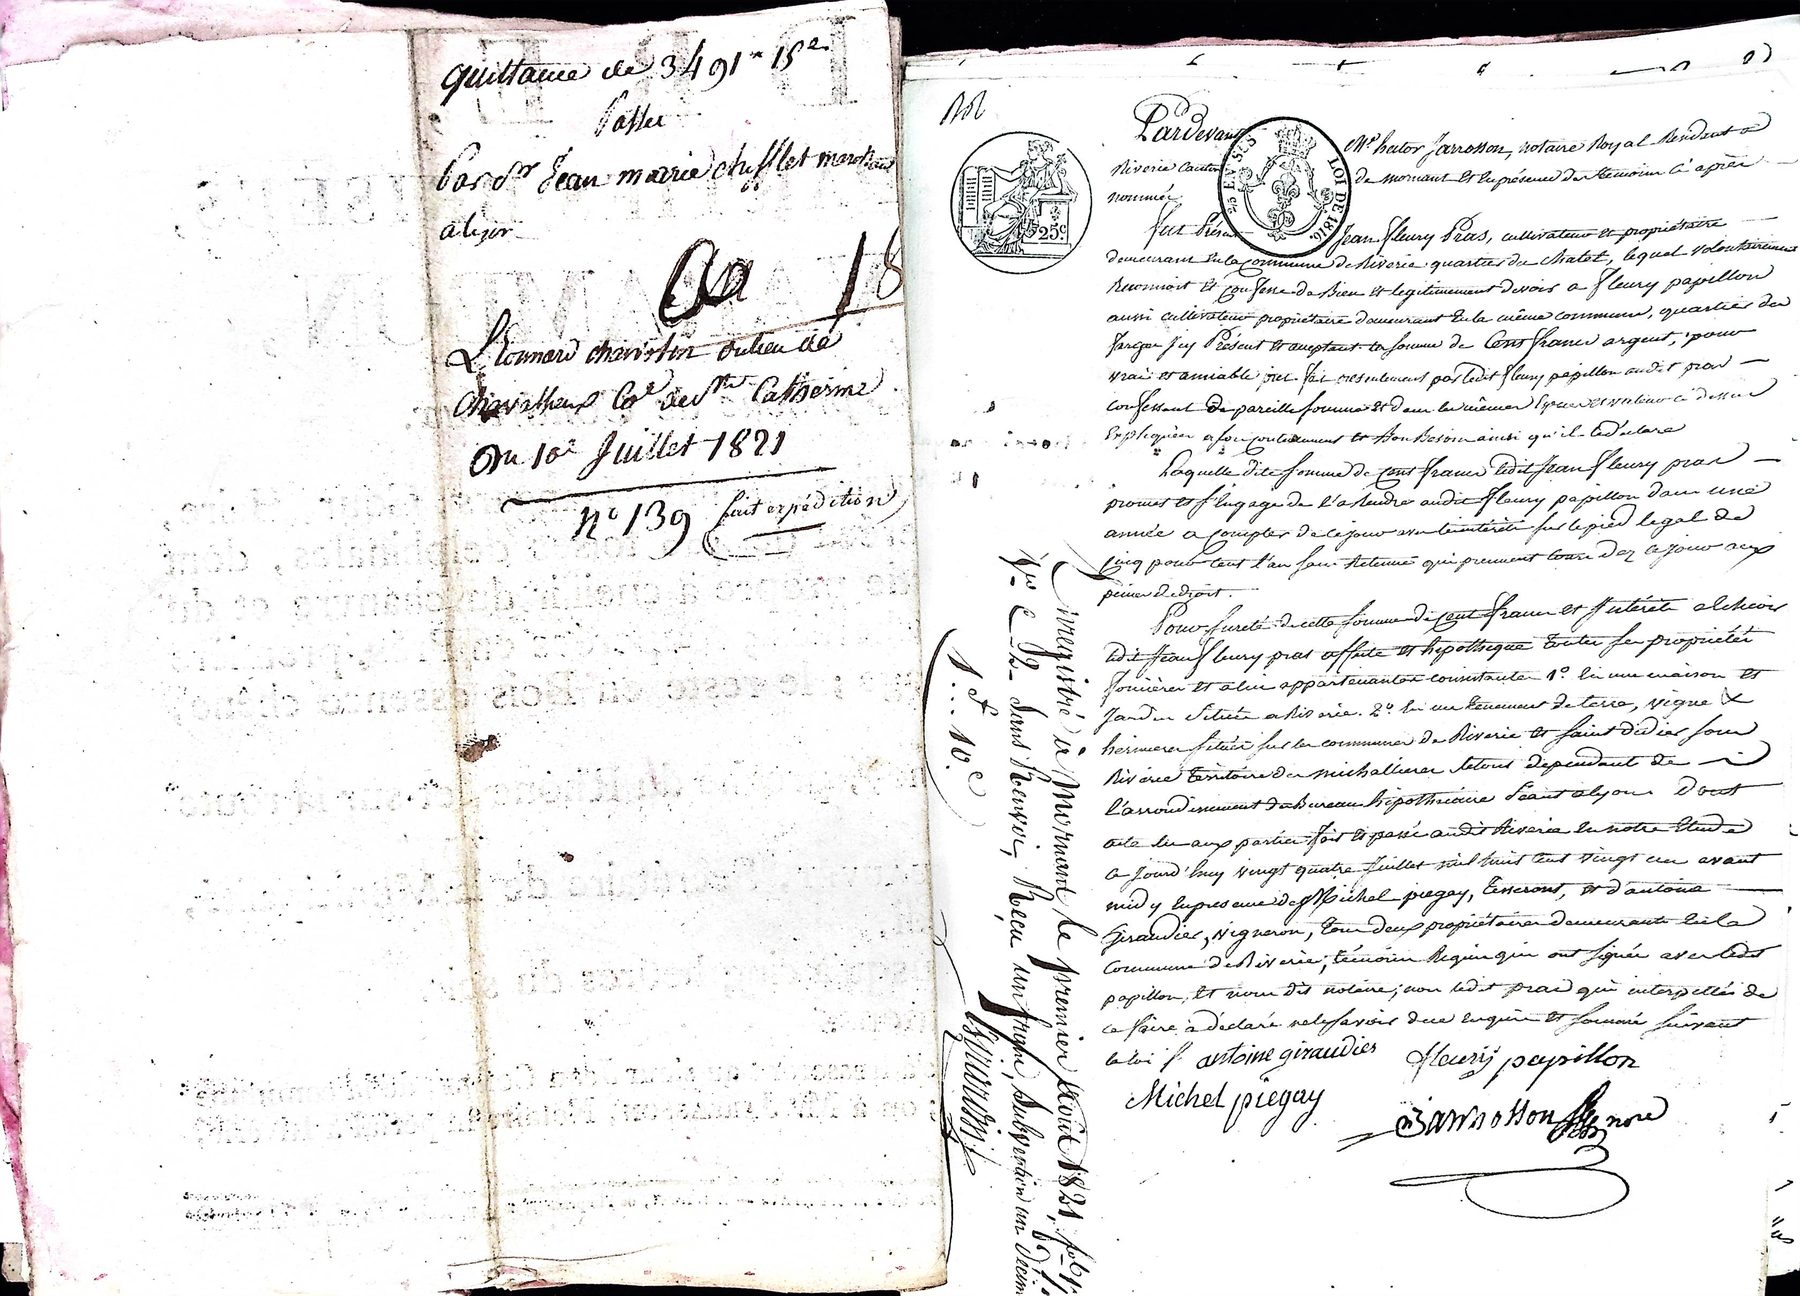 quittance de 3491 15
Passée
Par Sr Jean marie chifflet marchand
a lyon
18
Leonnard
de Ste Catherine
Du 10e Juillet 1821
No 139 fait expédition
Pardevant Me hator Jarrosson, notaire Royal Résidant a
Riverie Canton de mornant Et En présence des témoins ci après
nommés
25c
25 EN SUS
LOI DE 1816
fut Présent Jean fleury Pras, cultivateur et propriétaire
demeurant En la Commune de Riverie quartier du Chatet, lequel volontairement
Reconnoit Et Confesse de Bien et legitimement devoir a fleury papillon
aussi cultivateur propriétaire demeurant En la même commune, quartier du
Présent et acceptant la somme de Cent francs argent, pour
vrai et amiable pret fait par ledit fleury papillon audit pras
confessant de pareille somme et dans les mêmes Espèces et valeur ci dessus
Expliquées a son Contentement et Bon Besoin ainsi qu'il le déclare
Laquelle dite somme de Cent francs ledit Jean fleury pras
promet et s'Engage de la Rendre audit fleury papillon dans une
année a compter de ce jour avec l'intérêt sur le pied legal de
cinq pour Cent l'an sans Retenue qui prennent cours dez ce jour aux
peines de droit.
Pour sureté de cette somme de Cent francs et Intérêts a Echeoir
ledit Jean fleury pras affecte et hipothèque toutes ses propriétés
foncières et a lui appartenantes consistantes 1o En une maison et
Jardin Située a Riverie. 2o En un tenement de terre, vigne &
hermures situées sur les communes de Riverie et Saint didier sous
Riverie territoire des le tout dependant de
l'arrondissement du Bureau hipothécaire séant a lyon Dont
acte lu aux parties fait et passé audit Riverie En notre Etude
ce jourd'huy vingt quatre Juillet mil huit cent vingt un avant
midy En presence de Michel piegay, Tisserant, et d'antoine
Giraudier, vigneron, tous deux propriétaires demeurants En la
Commune de Riverie, témoins Requis qui ont signés avec ledit
papillon, et nous dit notaire, non ledit pras qui interpellés de
ce faire à déclaré ne le savoir de ce Enquis Et sommé suivant
la loi
antoine giraudier
fleury papillon
Michel piégay
Jarrosson nore
Enregistré à Mornant le premier Août 1821, fo 61
Vo C 2 Sans Renvoi, Reçu un franc, subvention un decime
1 f 10 c